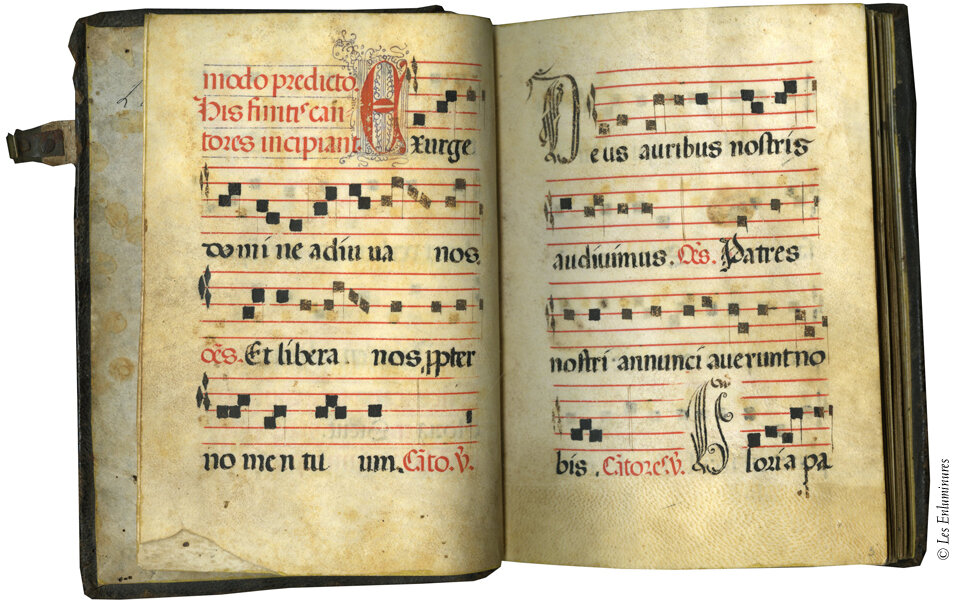 modo predicto.
His finitis can
tores incipiant. Exurge
domi ne adiu ua nos.
Oes. Et libera nos, ppter
no men tu um. Cato. V.
Deus auribus nostris
audiuimus. Oes. Patres
nostri annunci auerunt no
bis. Catores. V. Gloria pa
© Les Enluminures